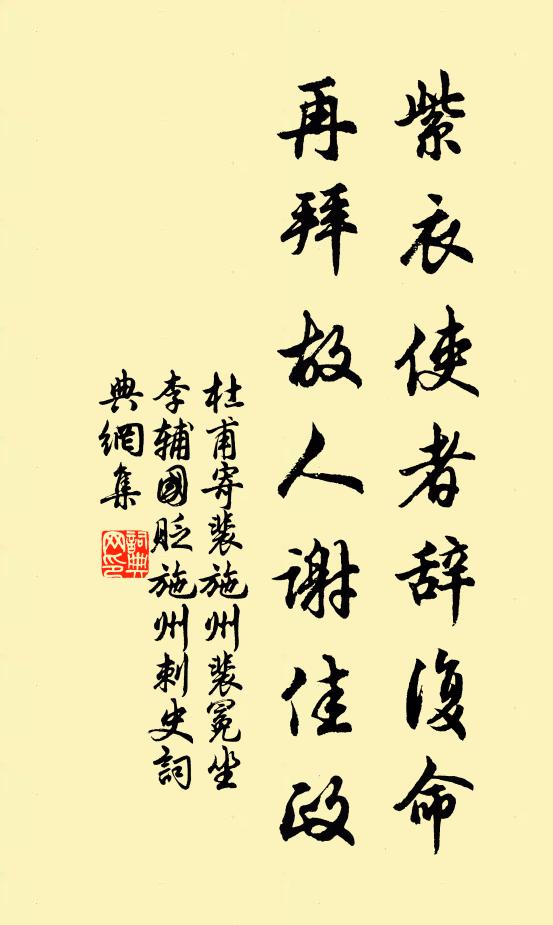 紫衣使者辞復命
再拜故人謝佳政
杜甫寄裴施州裴冕坐
李辅國貶施州刺史詞
典網集
詞典网印